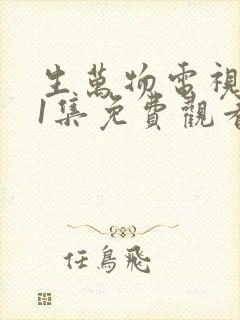 生萬物電視
1集免費觀看
任鳥飛